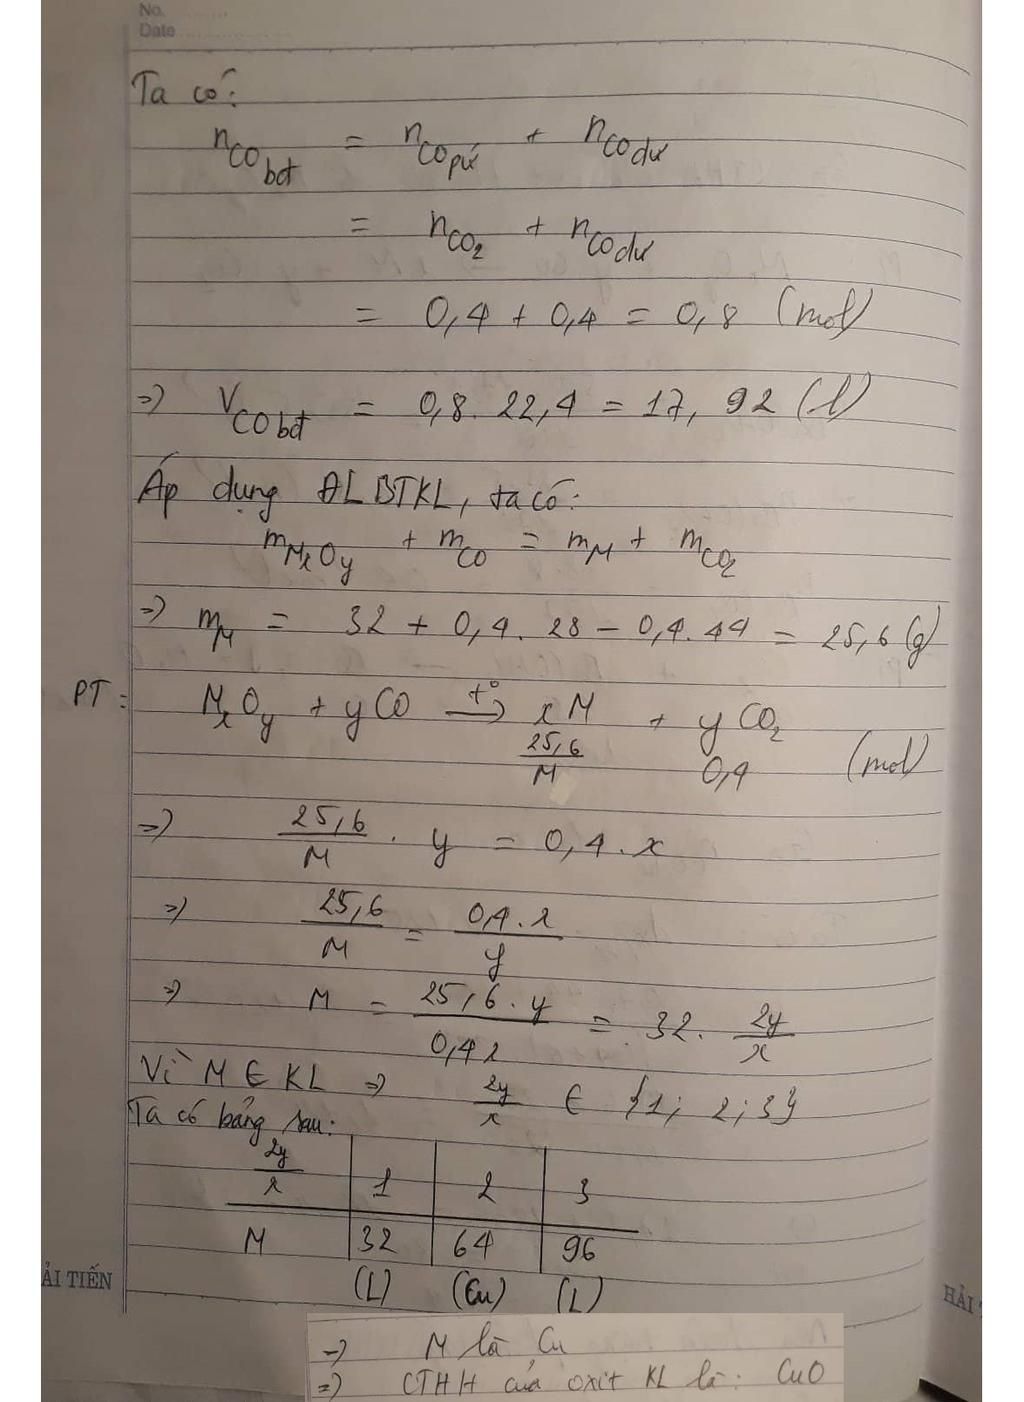 No.
Date
Ta có:
nCO bđ = nCO pứ + nCO dư
= nCO2 + nCO dư
= 0,4 + 0,4 = 0,8 (mol)
=> VCO bđ = 0,8 . 22,4 = 17,92 (l)
Áp dụng ĐLBTKL, ta có:
mMxOy + mCO = mM + mCO2
=> mM = 32 + 0,4 . 28 - 0,4 . 44 = 25,6 (g)
PT: MxOy + yCO t°→ xM + yCO2
25,6/M 0,4 (mol)
=> 25,6/M . y = 0,4 . x
=> 25,6/M = 0,4 . x/y
=> M = 25,6 . y/0,4x = 32 . 2y/x
Vì M ∈ KL => 2y/x ∈ {1; 2; 3}
Ta có bảng sau:
2y/x 1 2 3
M 32 64 96
(L) (Cu) (L)
ẢI TIẾN
HẢI
=> M là Cu
=> CTHH của oxit KL là: CuO